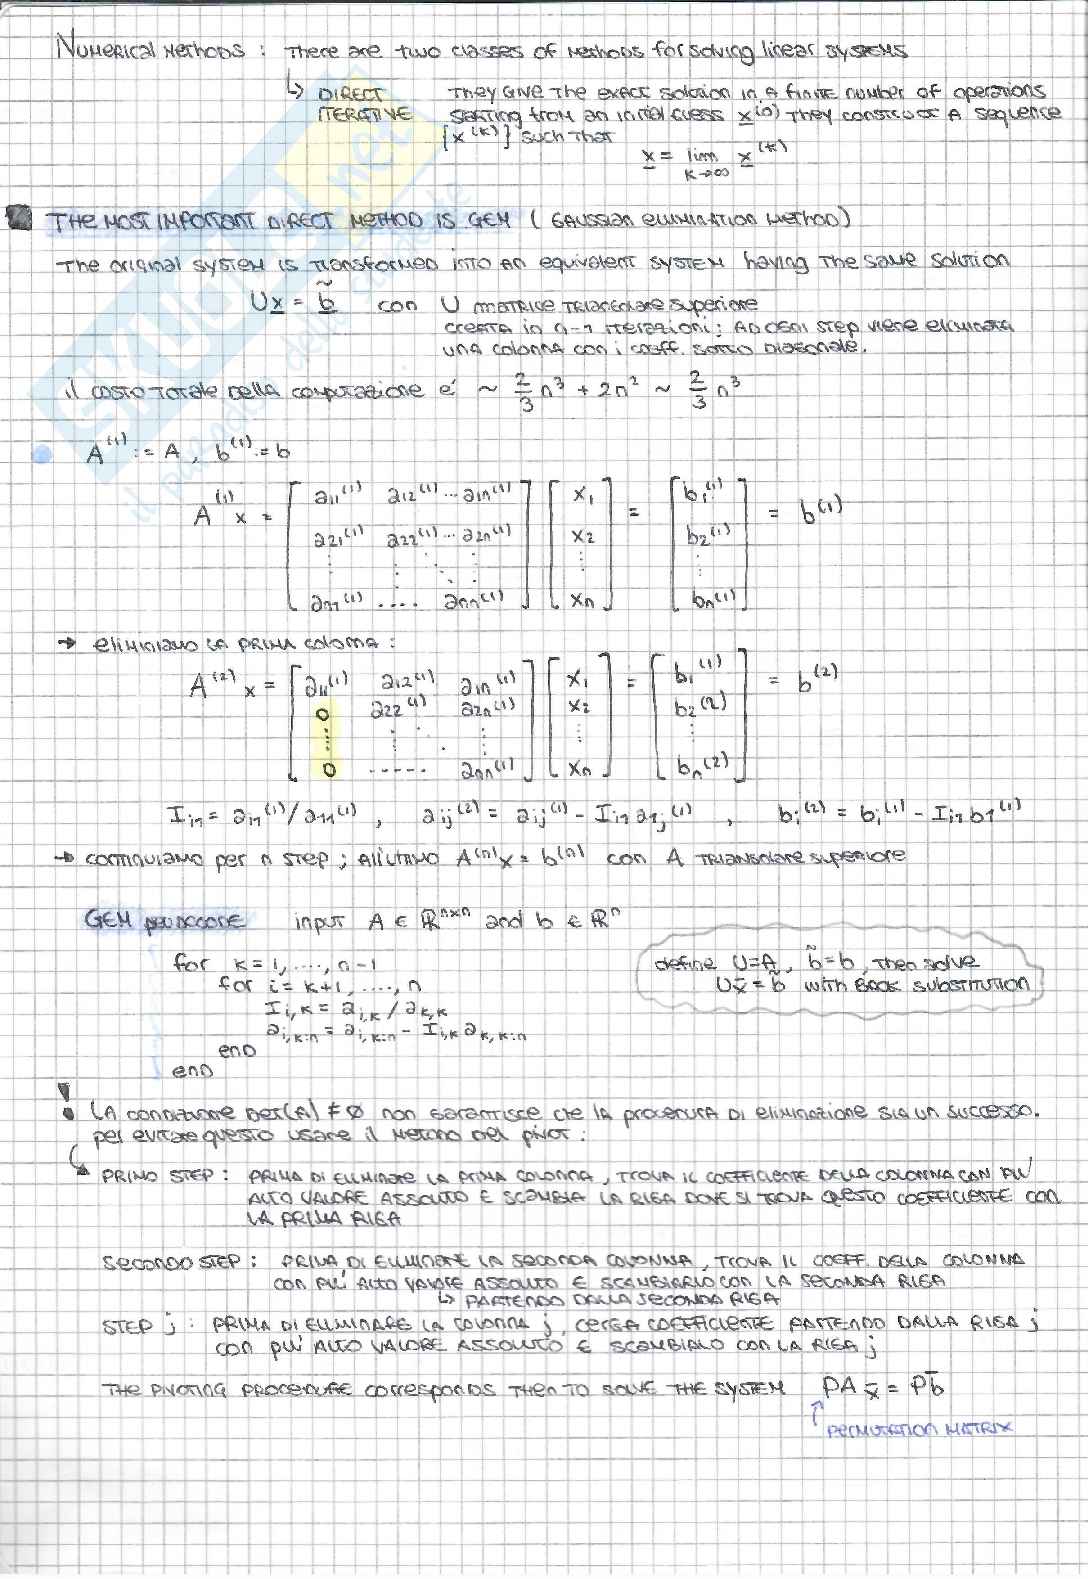 NUMERICAL METHODS : THERE ARE TWO CLASSES OF METHODS FOR SOLVING LINEAR SYSTEMS
↳ DIRECT THEY GIVE THE EXACT SOLUTION IN A FINITE NUMBER OF OPERATIONS
ITERATIVE STARTING FROM AN INITIAL GUESS x^(0) THEY CONSTRUCT A SEQUENCE
{x^(k)} SUCH THAT
x = lim x^(k)
k→∞
THE MOST IMPORTANT DIRECT METHOD IS GEM ( GAUSSIAN ELIMINATION METHOD)
THE ORIGINAL SYSTEM IS TRANSFORMED INTO AN EQUIVALENT SYSTEM HAVING THE SAME SOLUTION
Ux = b̃ CON U MATRICE TRIANGOLARE SUPERIORE
CREATA IN n-1 ITERAZIONI: AD OGNI STEP VIENE ELIMINATA
UNA COLONNA CON I COEFF. SOTTO DIAGONALE.
IL COSTO TOTALE DELLA COMPUTAZIONE E' ~ 2/3 n³ + 2n² ~ 2/3 n³
A^(1) := A , b^(1) = b
A^(1) x = [ a11^(1) a12^(1) ... a1n^(1) ] [ x1 ] = [ b1^(1) ] = b^(1)
a21^(1) a22^(1) ... a2n^(1) x2 b2^(1)
an1^(1) .... ann^(1) xn bn^(1)
→ ELIMINIAMO LA PRIMA COLONNA :
A^(2) x = [ a11^(1) a12^(1) a1n^(1) ] [ x1 ] = [ b1^(1) ] = b^(2)
0 a22^(1) a2n^(1) x2 b2^(2)
0 ..... ann^(1) xn bn^(2)
Ii1 = ai1^(1)/a11^(1) , aij^(2) = aij^(1) - Ii1 a1j^(1) , bi^(2) = bi^(1) - Ii1 b1^(1)
→ CONTINUIAMO PER n STEP ; ALL'ULTIMO A^(n)x = b^(n) CON A TRIANGOLARE SUPERIORE
GEM input A ∈ ℝ^nxn and b ∈ ℝ^n
for k = 1, ...., n-1
for i = k+1, ...., n
Ii,k = ai,k / ak,k
ai,k:n = ai,k:n - Ii,k ak,k:n
end
end
define U=A, b̃=b, THEN SOLVE
Ux = b̃ WITH BACK SUBSTITUTION
! LA CONDIZIONE DET(A) ≠ 0 NON GARANTISCE CHE LA PROCEDURA DI ELIMINAZIONE SIA UN SUCCESSO.
PER EVITARE QUESTO USARE IL METODO DEL PIVOT :
↳ PRIMO STEP : PRIMA DI ELIMINARE LA PRIMA COLONNA , TROVA IL COEFFICIENTE DELLA COLONNA CON PIU'
ALTO VALORE ASSOLUTO E SCAMBIA LA RIGA DOVE SI TROVA QUESTO COEFFICIENTE CON
LA PRIMA RIGA
SECONDO STEP : PRIMA DI ELIMINARE LA SECONDA COLONNA , TROVA IL COEFF. DELLA COLONNA
CON PIU' ALTO VALORE ASSOLUTO E SCAMBIARLO CON LA SECONDA RIGA
↳ PARTENDO DALLA SECONDA RIGA
STEP j : PRIMA DI ELIMINARE LA COLONNA j, CERCA COEFFICIENTE PARTENDO DALLA RIGA j
CON PIU' ALTO VALORE ASSOLUTO E SCAMBIALO CON LA RIGA j
THE PIVOTING PROCEDURE CORRESPONDS THEN TO SOLVE THE SYSTEM PAx = Pb
↑ PERMUTATION MATRIX
SKUOLA.net